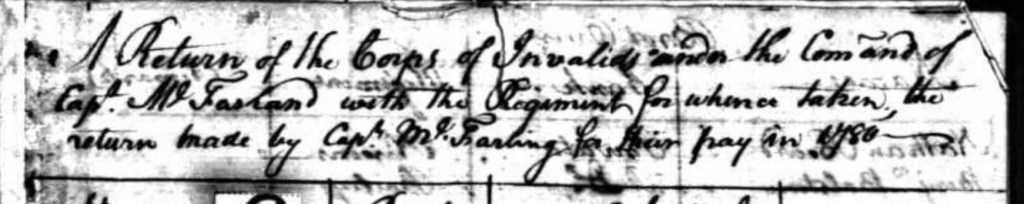 A Return of the Corps of Invalids under the Comand of
Capt. Mc. Farland with the Regiment for whence taken, the
return made by Capt. Mc. Farling for their pay in 1780